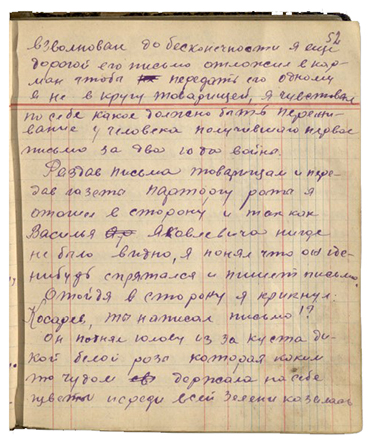 52
взволнован до бесконечности я ещё
дорогой его письмо отложил в кар-
ман чтоба передать его одному
а не в кругу товарищей, я чувствовал
по себе какое должно быть пережи-
вание у человека получившего первое
письмо за два года война.
Раздав письма товарищам и пере-
дав газета парторгу рота я
отошел в сторону и так как
Василья Яковлевича нигде
не было видно, я понял что он где-
нибудь спрятался и пишет письмо.
Отойдя в сторону я крикнул.
Косарев, ты написал письмо!?
Он поднял голову из за куста ди-
кой белой роза которая каким
то чудом держала на себе
цветы и среди всей зелени казалась